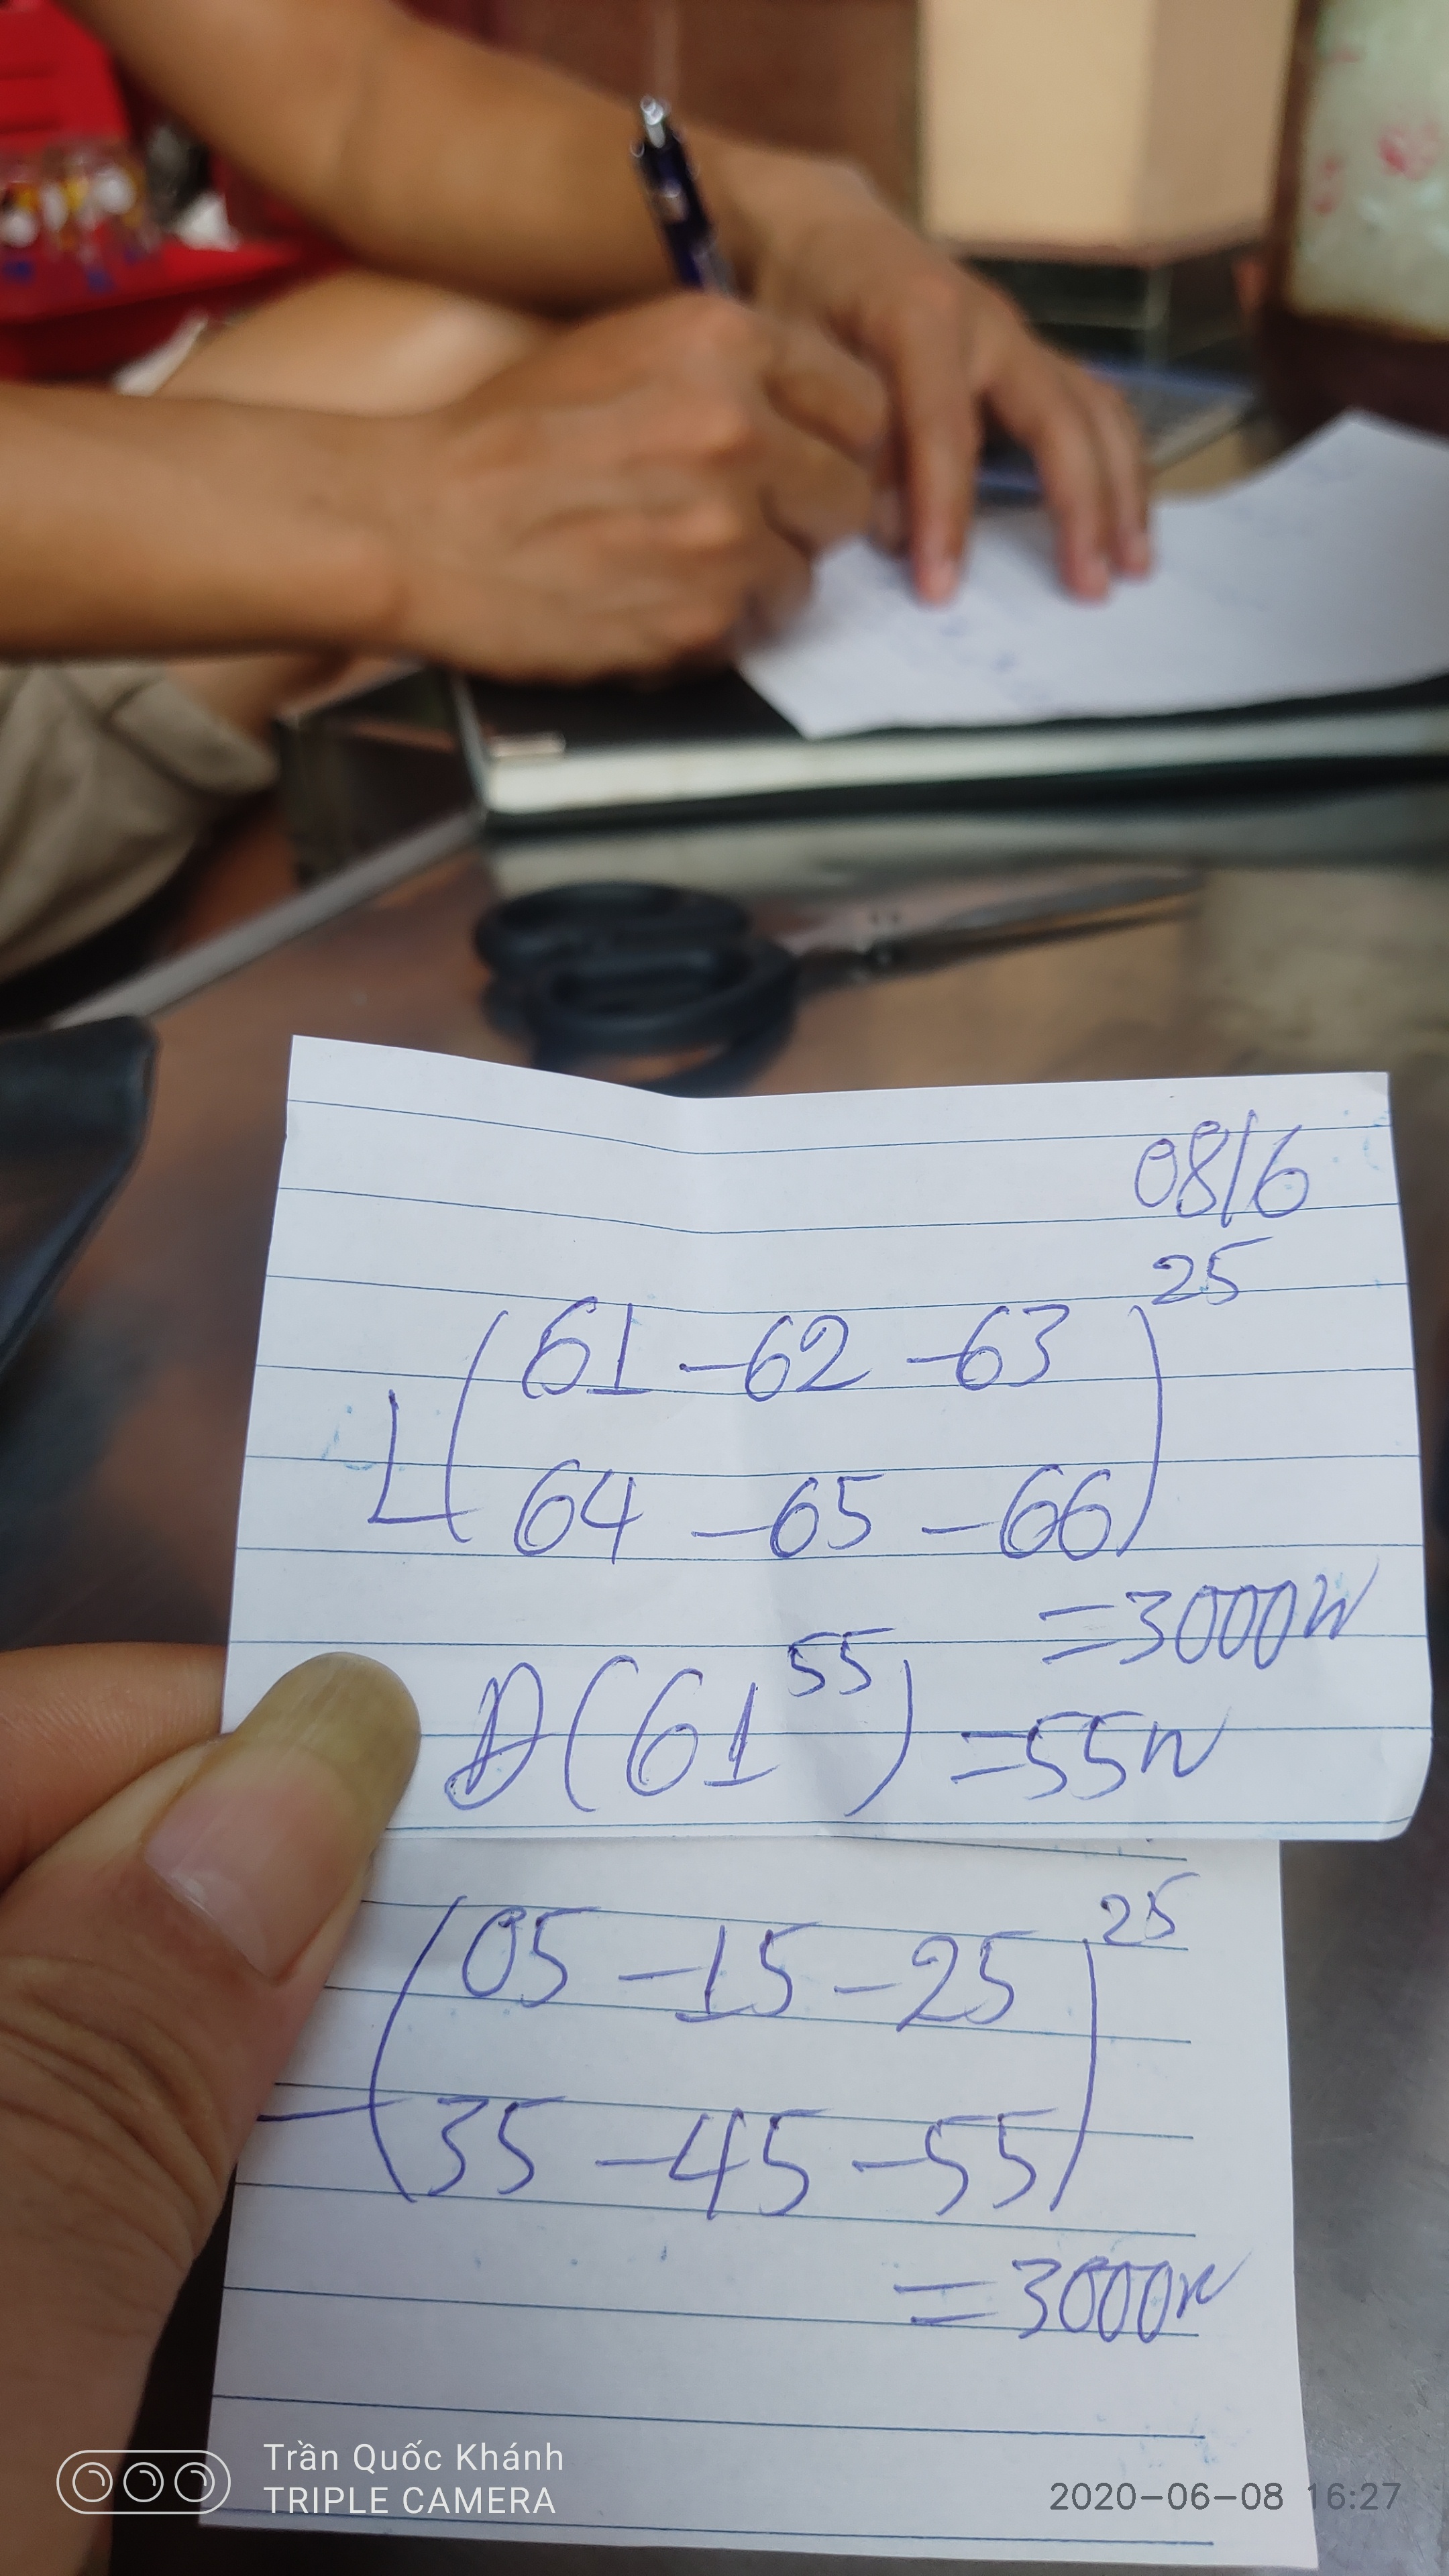 08/6
25
L(61-62-63)
64-65-66
=3000N
55
Đ(61) =55N
25
(05-15-25)
35-45-55
=3000N
Trần Quốc Khánh
TRIPLE CAMERA
2020-06-08 16:27